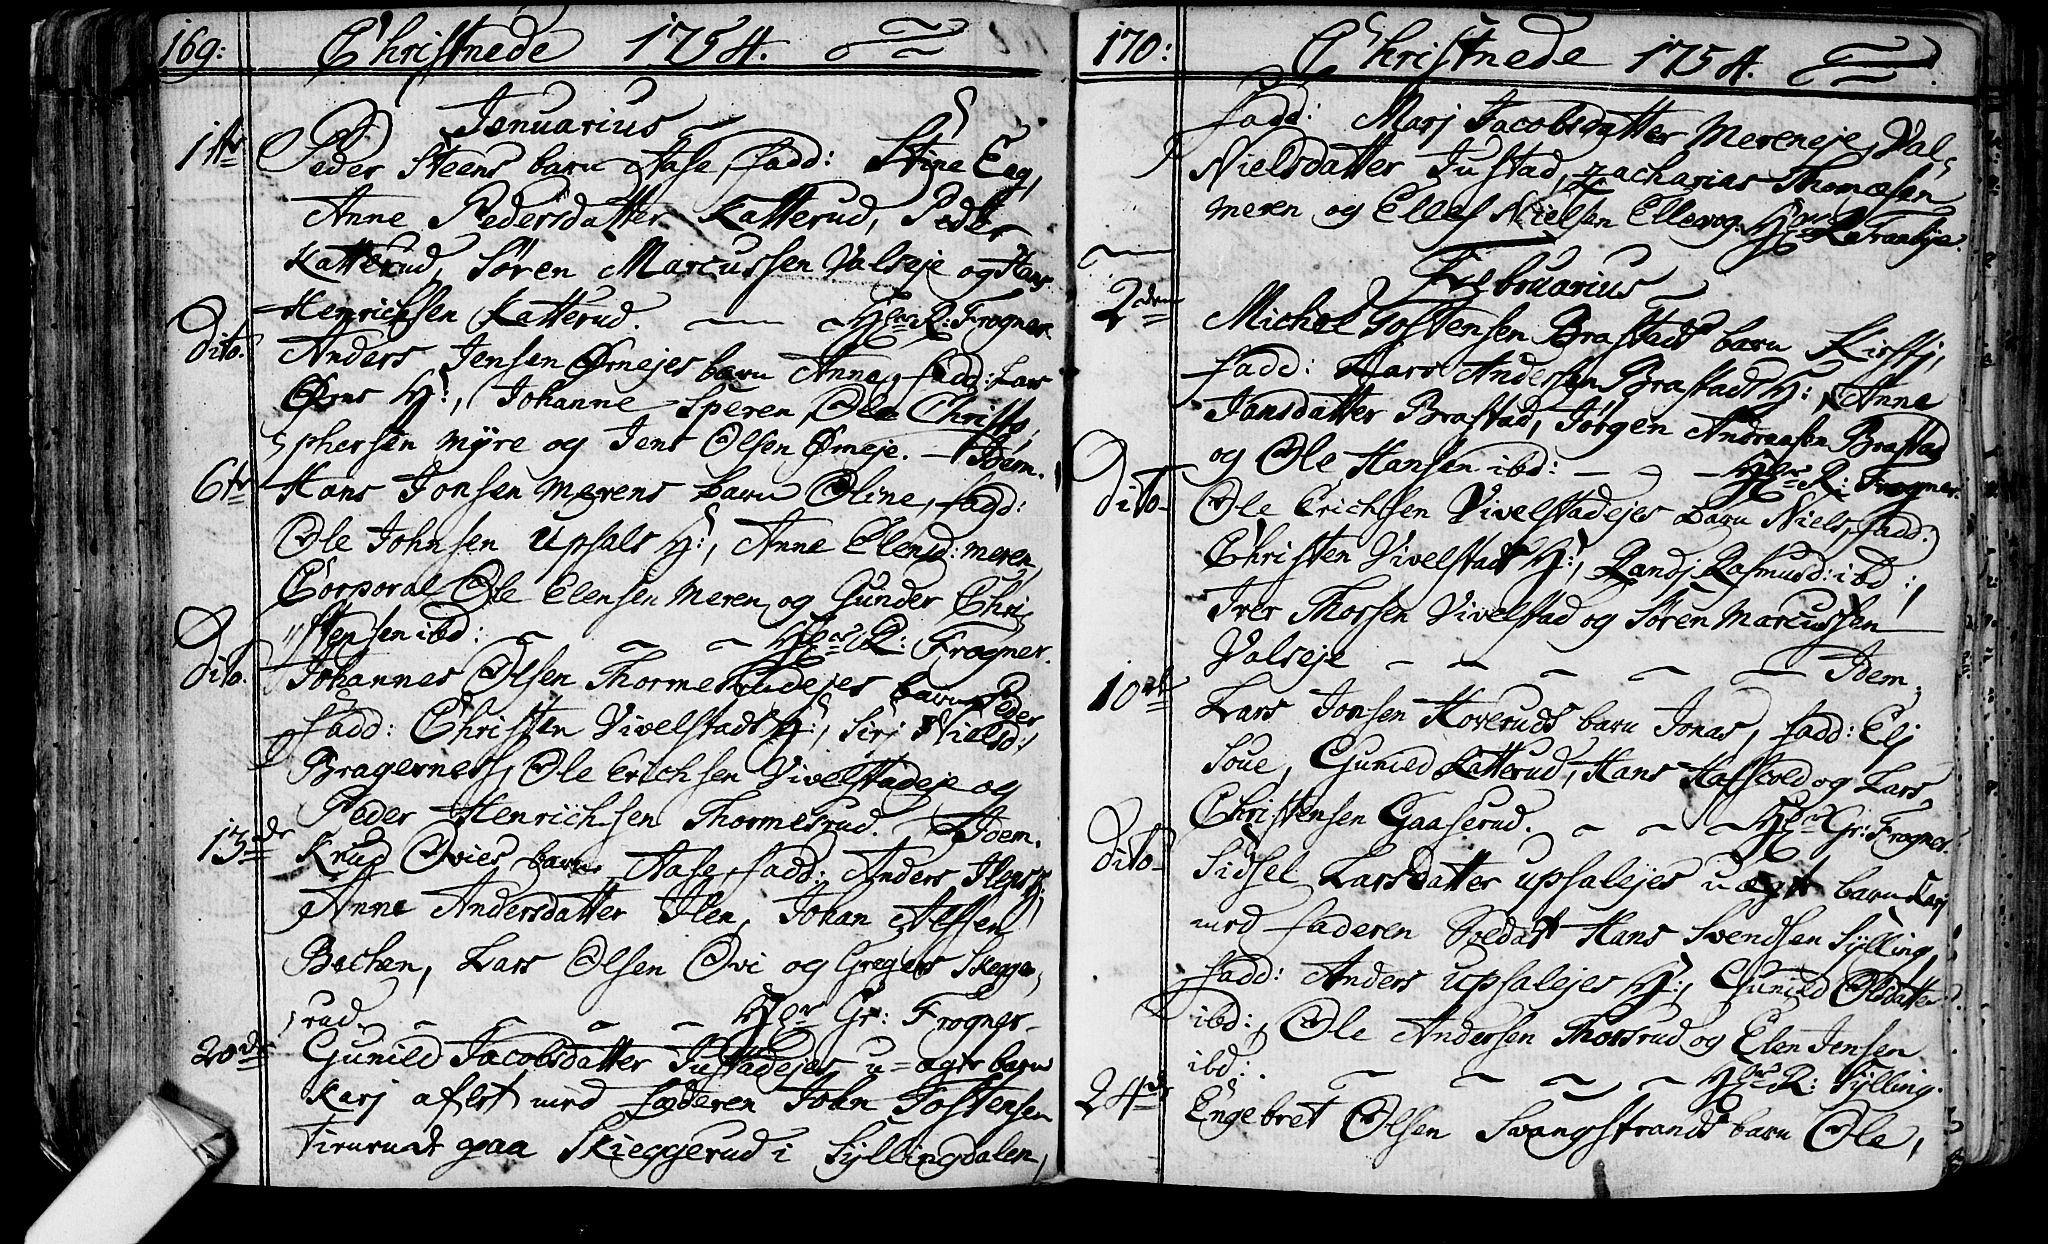 169:
Christnede 1754.
Januarius
1ste Peder Steens barn Aase, fadd: Stine Eeg,
Anne Pedersdatter Katterud, Peder
Katterud, Søren Marcussen Valseje og Hans
Henrichsen Katterud. Hr R: Frogner.
dito. Anders Jensen Ørnejes barn Anne, fadd: Lars
Ørns H:, Johanne Speren, Ole Christo,
phersen Myre og Jens Olsen Ørneje. Idem.
6te Hans Jonsen Merens barn Oline, fadd:
Ole Johnsen Upsals H:, Anne Elensd: Meren,
Corporal Ole Elensen Meren og Gunder Chri,
stensen ibd: Hr R: Frogner.
dito. Johannes Olsen Thormesrudejes barn Peder
fadd: Christen Vivelstads H:, Sirj Nielsd:
Bragernes, Ole Erichsen Vivelstadeje og
Peder Henrichsen Thormesrud. Idem.
13de Knud Ovies barn Aase, fadd: Anders Ilens H:,
Anne Andersdatter Ilen, Johan Alfsen
Bachen, Lars Olsen Ovi og Gregers Skegge,
rud. Hr Gr: Frogner.
20de Gunild Jacobsdatter Justadejes u-ægte barn
Karj aflet med faderen John Tostensen
paa Skieggerud i Syllingdalen,
170:
Christnede 1754.
fadd: Marj Jacobsdatter Mereneje, Val-
Nielsdatter Justad, Zacharias Thomæsen
Meren og Ellef Nielsen Ellevog. Hr
Februarius
2den Michel Tostensen Brastads barn Kirstj,
fadd: Lars Andersen Brastads H:, Anne
Jansdatter Brastad, Jørgen Andreasen Brastad
og Ole Hansen ibd: Hr R: Frogner.
dito Ole Erichsen Vivelstadejes barn Niels, fadd:
Christen Vivelstads H:, Randj Rasmusd: ibd:,
Iver Thorsen Vivelstad og Søren Marcussen
Valseje Idem,
10de Lars Jonsen Hoveruds barn Jonas, fadd: Elj
Soue, Gunild Katterud, Hans Hafsvold og Lars
Christensen Gaaserud. Hr Gr: Frogner.
dito Sidsel Larsdatter Upsalejes uægte barn Karj
med faderen Soldat Hans Svendsen Sylling,
fadd: Anders Upsalejes H:, Gunild Olsdatter
ibd:, Ole Andersen Thorsrud og Elen Jensen
ibd: Hr R: Sylling.
24de Engebret Olsen Svangstrands barn Ole,